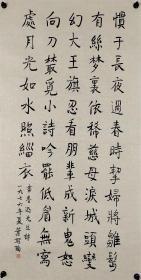 慣于長夜過春時挈婦將雛鬢
有絲夢裏依稀慈母淚城頭變
幻大王旗忍看朋輩成新鬼怒
向刀叢覓小詩吟罷低眉無寫
處月光如水照緇衣
書魯迅先生詩
一九七六年夏